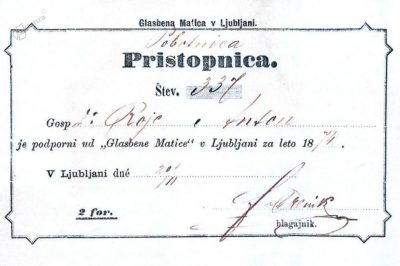 Glasbena Matica v Ljubljani.
Pobotnica
Pristopnica.
Štev. 337
Gosp
je podporni ud „Glasbene Matice" v Ljubljani za leto 1874.
V Ljubljani dné 20/11
2 for.
blagajnik.